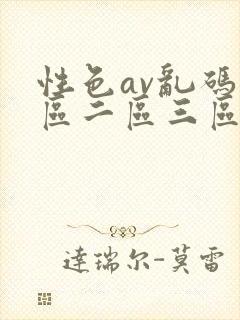 性色av亂碼
區二區三區
達瑞尔-莫雷